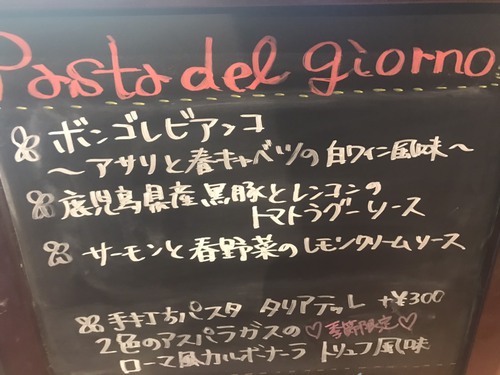 Pasta del giorno
ボンゴレビアンコ
～アサリと春キャベツの白ワイン風味～
鹿児島県産黒豚とレンコンの
トマトラグーソース
サーモンと春野菜のレモンクリームソース
手打ちパスタ タリアテッレ +¥300
2色のアスパラガスの ♡季節限定♡
ローマ風カルボナーラ トリュフ風味